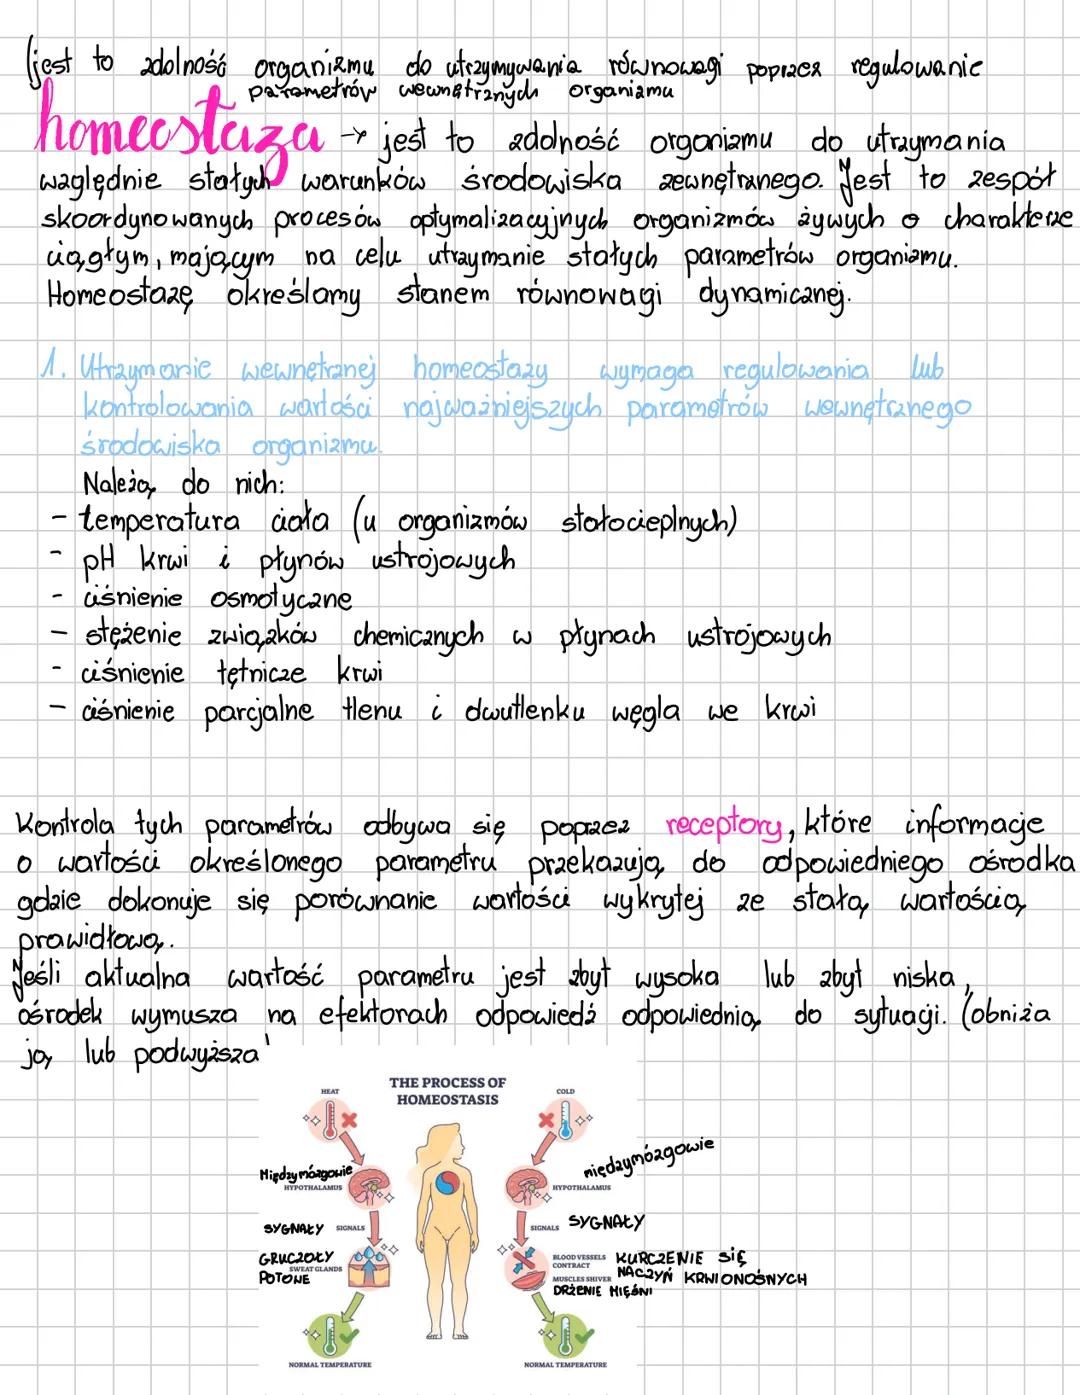 (jest to zdolność organizmu do utrzymywania równowagi poprzez regulowanie
parametrów wewnętrznych organizmu
homeostaza → jest to zdolność organizmu do utrzymania
względnie stałych warunków środowiska zewnętrznego. Jest to zespół
skoordynowanych procesów optymalizacyjnych organizmów żywych o charakterze
ciągłym, mającym na celu utrzymanie stałych parametrów organizmu.
Homeostazę określamy stanem równowagi dynamicznej.
1. Utrzymanie wewnętrznej homeostazy wymaga regulowania lub
kontrolowania wartości najważniejszych parametrów wewnętrznego
środowiska organizmu.
Należą do nich:
- temperatura ciała (u organizmów stałocieplnych)
- pH krwi i płynów ustrojowych
- ciśnienie osmotyczne
- stężenie związków chemicznych w płynach ustrojowych
- ciśnienie tętnicze krwi
- ciśnienie parcjalne tlenu i dwutlenku węgla we krwi
Kontrola tych parametrów odbywa się poprzez receptory, które informacje
o wartości określonego parametru przekazują do odpowiedniego ośrodka
gdzie dokonuje się porównanie wartości wykrytej ze stałą wartością
prawidłową.
Jeśli aktualna wartość parametru jest zbyt wysoka lub zbyt niska,
ośrodek wymusza na efektorach odpowiedź odpowiednią do sytuacji. (obniża
ją lub podwyższa
THE PROCESS OF
HOMEOSTASIS
HEAT
Międzymózgowie
HYPOTHALAMUS
SYGNAŁY SIGNALS
GRUCZOŁY
SWEAT GLANDS
POTOWE
NORMAL TEMPERATURE
COLD
międzymózgowie
HYPOTHALAMUS
SIGNALS SYGNAŁY
BLOOD VESSELS
CONTRACT
KURCZENIE SIĘ
NACZYŃ KRWIONOŚNYCH
MUSCLES SHIVER
DRŻENIE MIĘŚNI
NORMAL TEMPERATURE